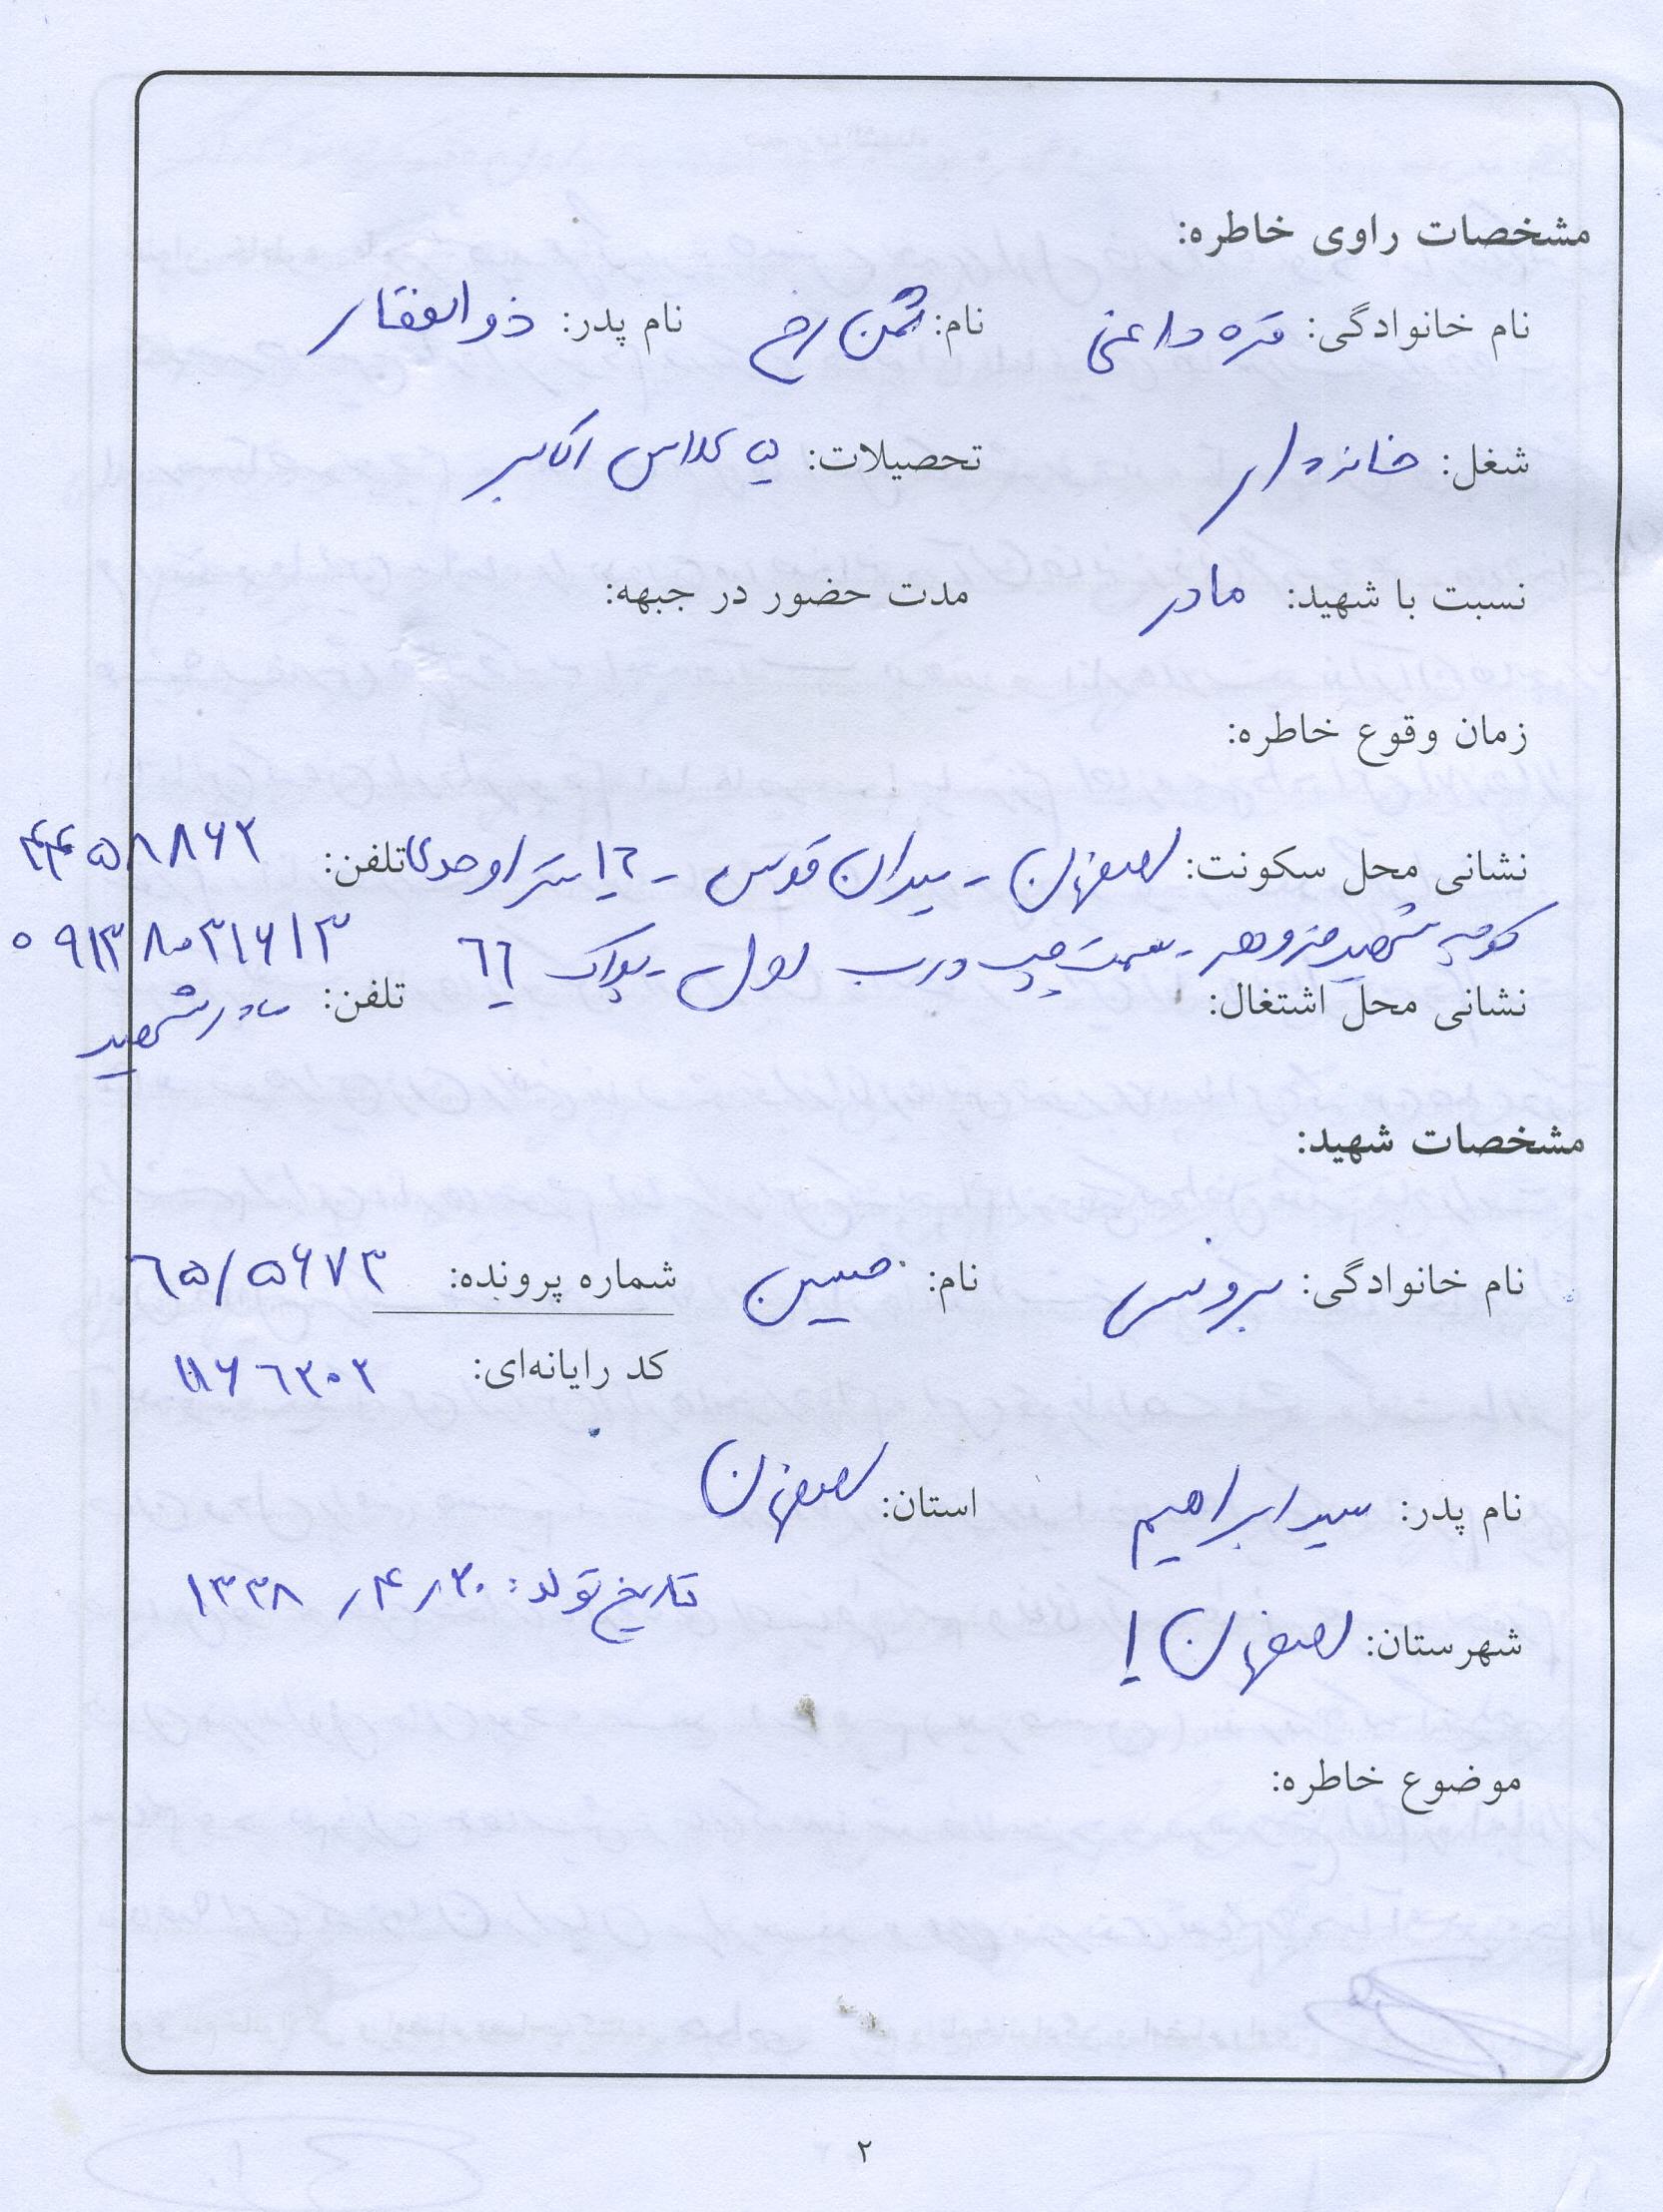 مشخصات راوی خاطره:
نام خانوادگی: قره داغی نام: ثمن رخ نام پدر: ذوالفقار
شغل: خانه دار تحصیلات: ۵ کلاس اکابر
نسبت با شهید: مادر مدت حضور در جبهه:
زمان وقوع خاطره:
نشانی محل سکونت: اصفهان - میدان قدس - ۱۲ متر اوحدی تلفن: ۴۴۵۸۸۶۲
کوچه شهید - سمت چپ درب اول - پلاک ۶۶ ۰۹۱۳۸۰۳۱۶۱۳
نشانی محل اشتغال: تلفن: مادر شهید
مشخصات شهید:
نام خانوادگی: نام: حسین شماره پرونده: ۶۵/۵۶۷۳
کد رایانه‌ای: ۱۱۶۶۳۰۲
نام پدر: سید ابراهیم استان: اصفهان
تاریخ تولد: ۱۳۳۸/۴/۳۰
شهرستان: اصفهان
موضوع خاطره:
۲